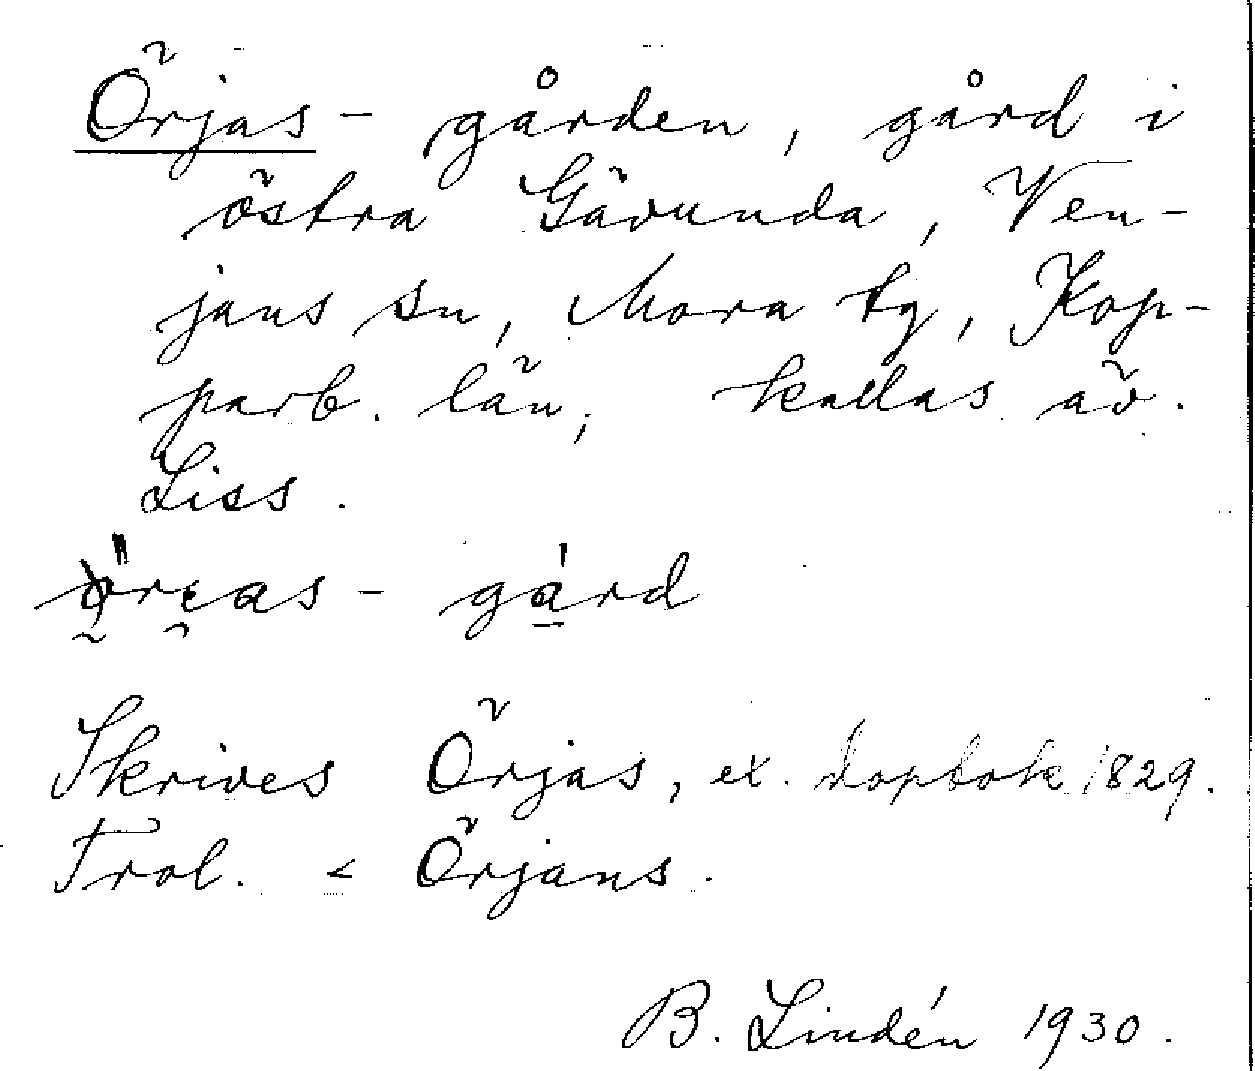 Örjas - gården, gård i
östra Gävunda, Ven-
jans sn, Mora tg, Kop-
parb. län; kallas äv.
Liss.
gård
Skrives Örjas, ex. dopbok 1829.
Trol. < Örjans.
B. Lindén 1930.